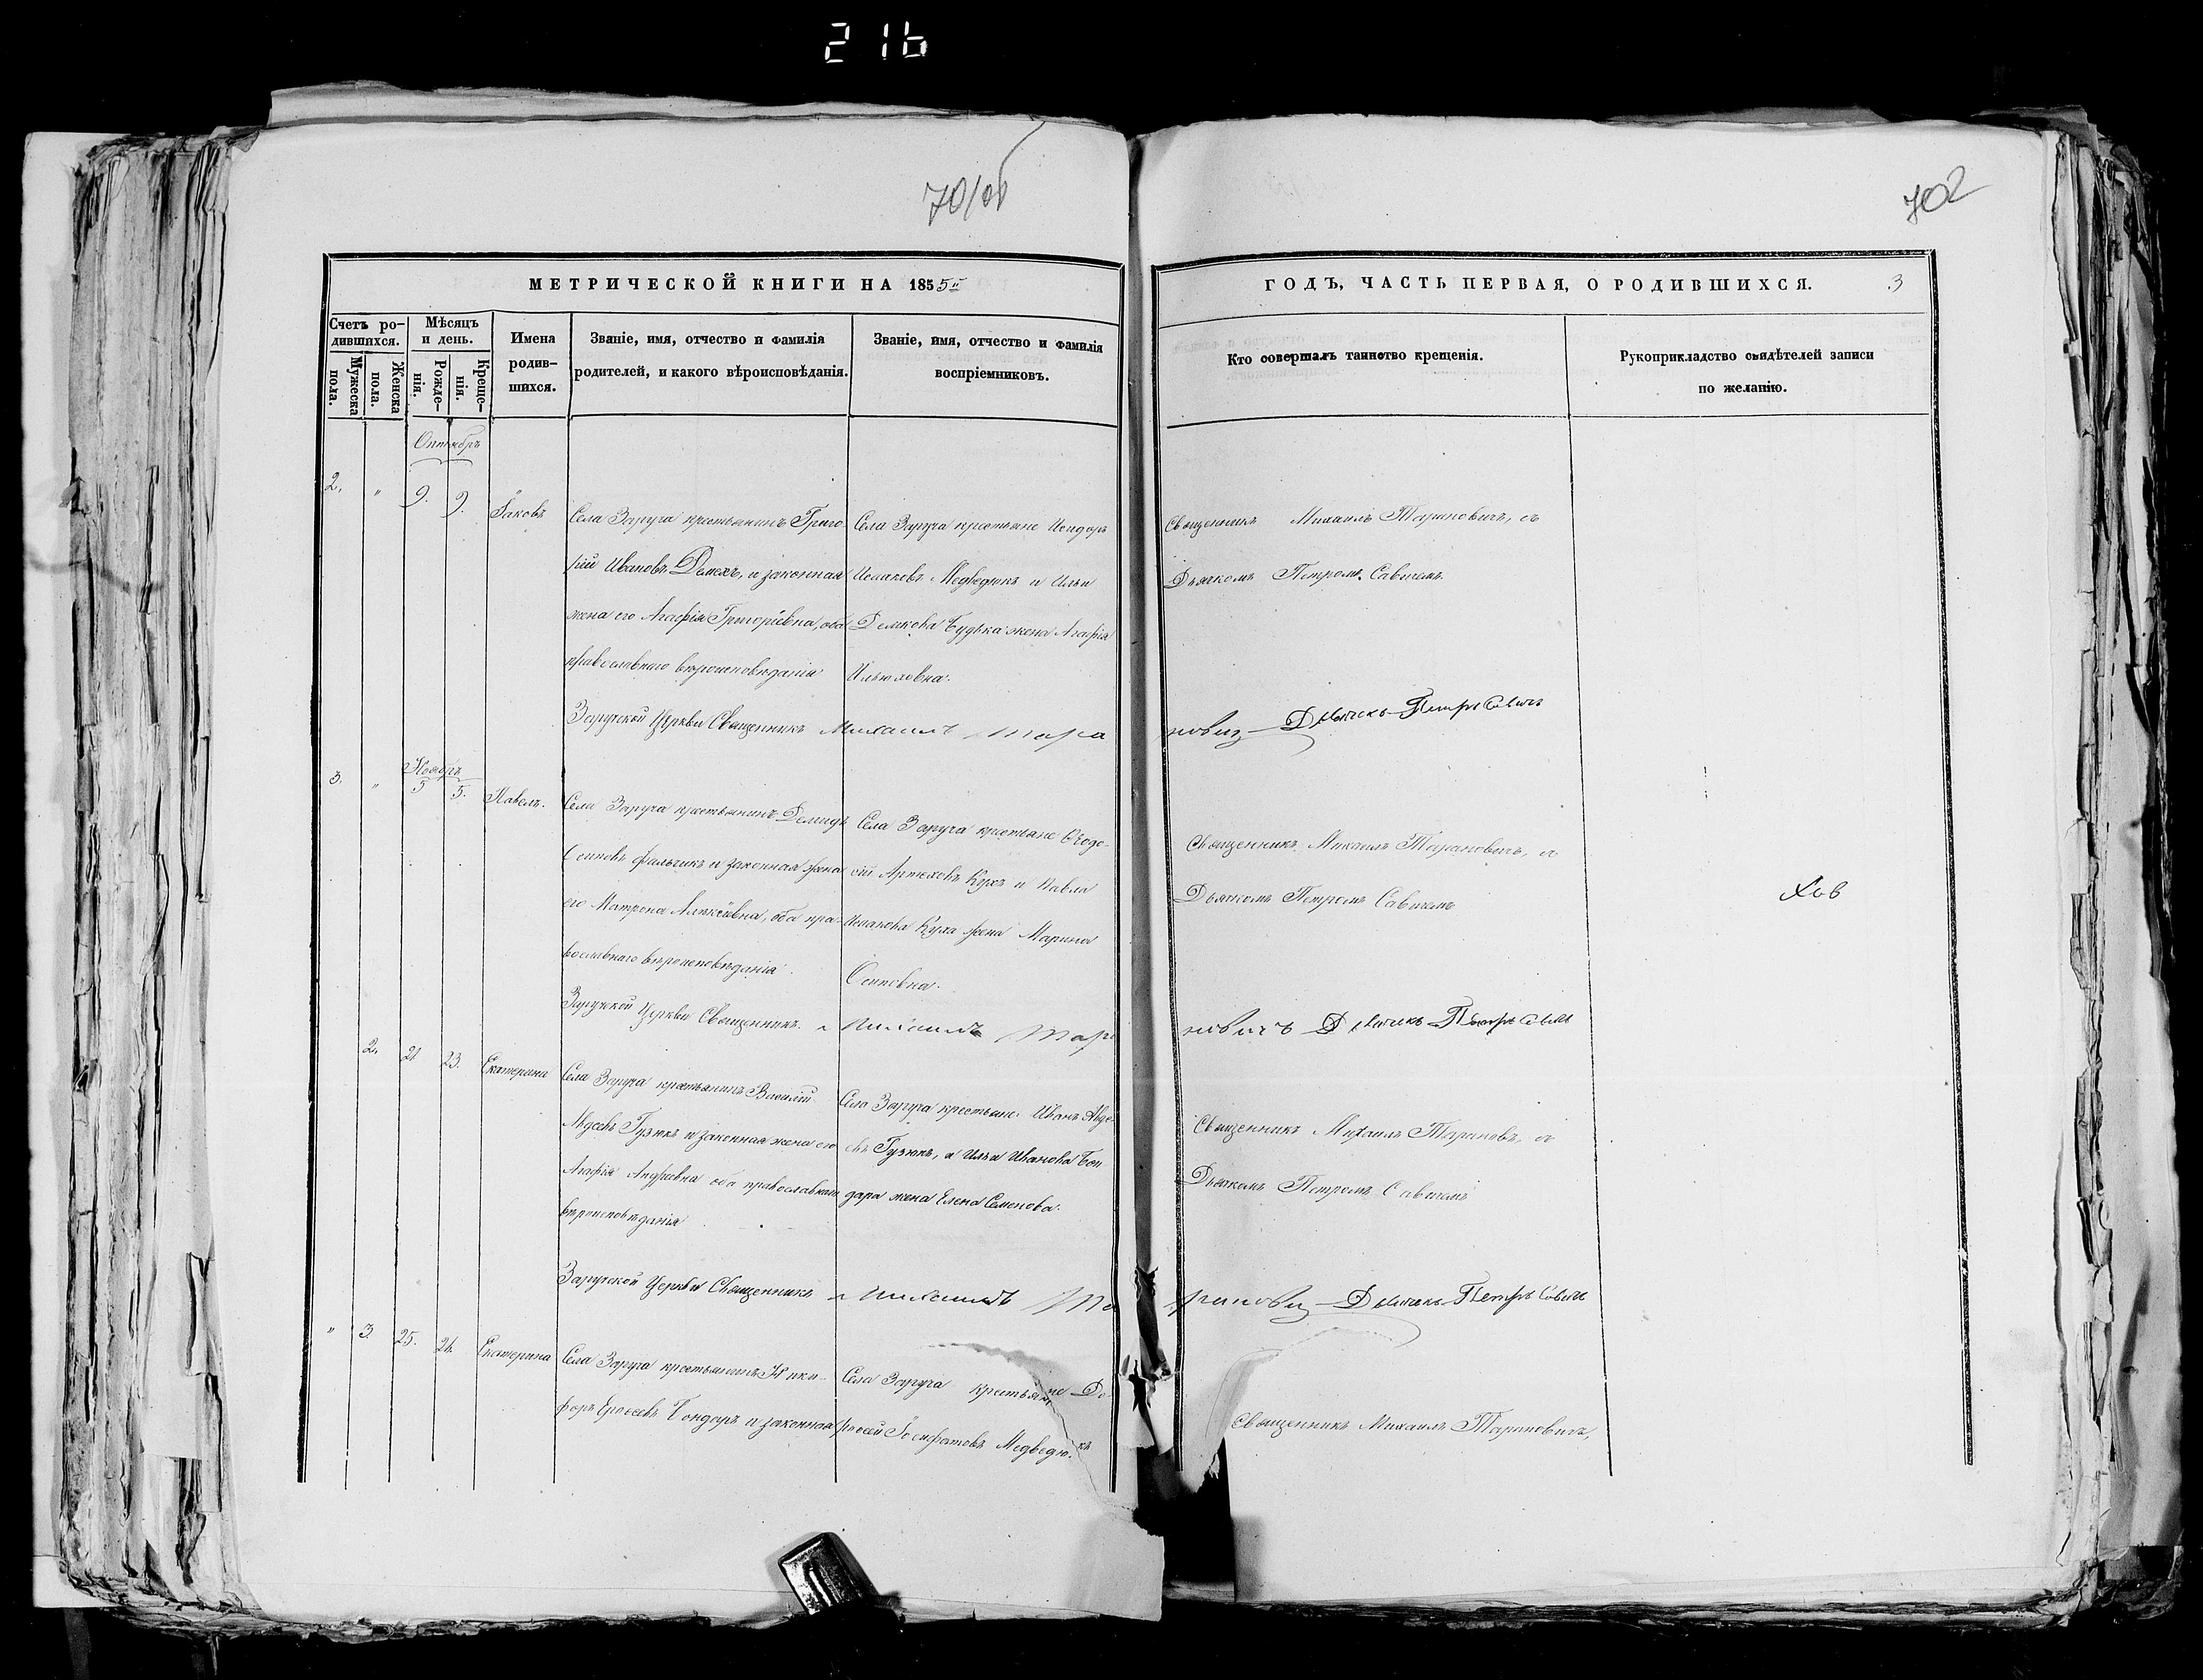 216
701об
702
МЕТРИЧЕСКОЙ КНИГИ НА 1855й
ГОДЪ, ЧАСТЬ ПЕРВАЯ, О РОДИВШИХСЯ.
3
Счетъ родившихся.
Мужеска пола.
Женска пола.
Мѣсяцъ и день.
Рожденія.
Крещенія.
Имена родившихся.
Званіе, имя, отчество и фамилія
родителей, и какого вѣроисповѣданія.
Званіе, имя, отчество и фамилія
воспріемниковъ.
Кто совершалъ таинство крещенія.
Рукоприкладство свидѣтелей записи
по желанію.
Октябрь
2. " 9. 9. Іаковъ
Села Заруча крестьянинъ Григо
рій Ивановъ Демехъ, и законная
жена его Агафія Григоріевна, оба
православнаго вѣроисповѣданія
Села Заруча крестьяне Исидоръ
Исааковъ Медведюкъ и Ильи
Демкова Будька жена Агафія
Ильюховна.
Священникъ Михаилъ Тарановичъ, съ
Дьячкомъ Петромъ Савичемъ.
Заручской Церкви Священникъ Михаилъ Тарановичъ Дьячекъ Петръ Савичъ
Ноябрь
3. " 5 5. Павелъ.
Села Заруча крестьянинъ Демидъ
Осиповъ Фальчикъ и законная жена
его Матрона Алексіевна, оба пра-
вославнаго вѣроисповѣданія.
Села Заруча крестьяне Ѳеодо-
сій Артеховъ Кухъ и Павла
Исаакова Куха жена Марина
Осиповна.
Священникъ Михаилъ Тарановичъ, съ
Дьячкомъ Петромъ Савичемъ
Заручской Церкви Священникъ Михаилъ Тарановичъ Дьячекъ Петръ Савичъ
2. 21 23. Екатерина
Села Заруча крестьянинъ Василій
Авдеевъ Гузюкъ и законная жена его
Агафія Андреевна оба православнаго
вѣроисповѣданія
Села Заруча крестьяне Иванъ Авде-
евъ Гузюкъ, и Ильи Иванова Бон
дара жена Елена Семенова.
Священникъ Михаилъ Тарановъ, съ
Дьячкомъ Петромъ Савичемъ
Заручской Церкви Священникъ Михаилъ Тарановичъ Дьячекъ Петръ Савичъ
" 3. 25. 26. Екатерина
Села Заруча крестьянинъ Ники-
форъ Ероѳеевъ Бондаръ и законная
Села Заруча крестьяне До-
роѳей Іосифатовъ Медведюкъ
Священникъ Михаилъ Тарановичъ,